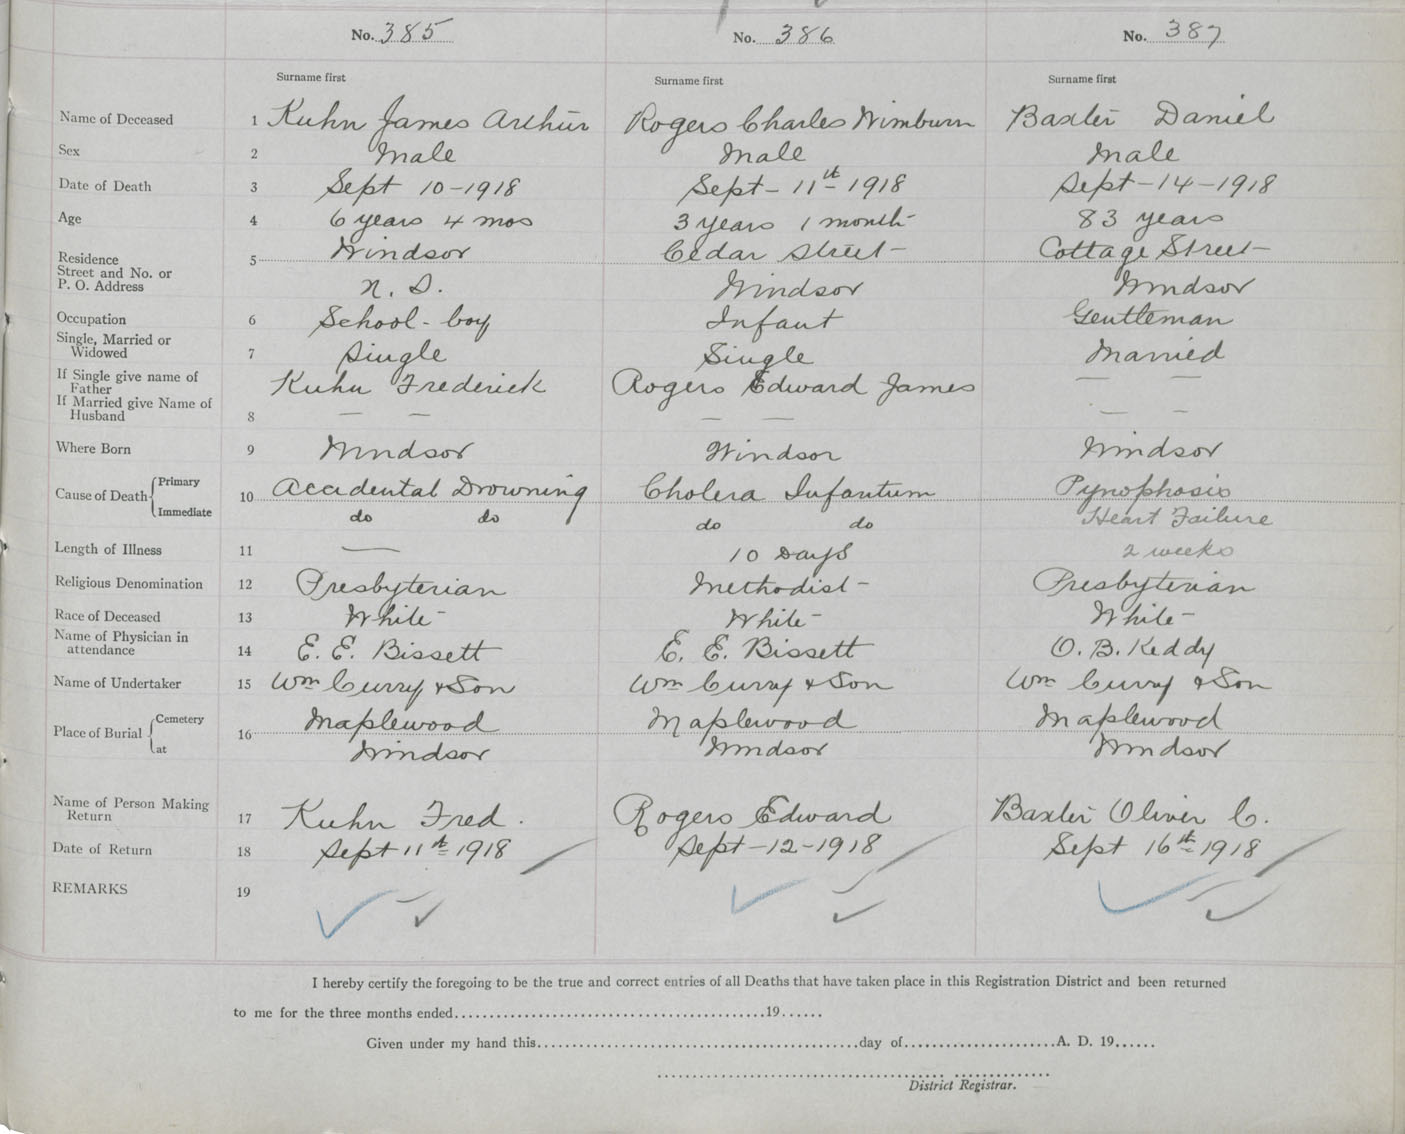 No. 385 No. 386 No. 387
Surname first Surname first Surname first
Name of Deceased 1 Kuhn James Arthur Rogers Charles Wimburn Baxter Daniel
Sex 2 Male Male Male
Date of Death 3 Sept 10-1918 Sept-11th 1918 Sept-14-1918
Age 4 6 years 4 mos 3 years 1 month 83 years
Residence 5 Windsor Cedar Street Cottage Street
Street and No. or
P. O. Address N. S. Windsor Windsor
Occupation 6 School-boy Infant Gentleman
Single, Married or
Widowed 7 Single Single Married
If Single give name of
Father Kuhn Frederick Rogers Edward James — —
If Married give Name of
Husband 8 — — — — — —
Where Born 9 Windsor Windsor Windsor
Cause of Death Primary 10 Accidental Drowning Cholera Infantum Pynophosis
Immediate do do do do Heart Failure
Length of Illness 11 — 10 Days 2 weeks
Religious Denomination 12 Presbyterian Methodist Presbyterian
Race of Deceased 13 White White White
Name of Physician in
attendance 14 E. E. Bissett E. E. Bissett O. B. Keddy
Name of Undertaker 15 Wm Curry & Son Wm Curry & Son Wm Curry & Son
Place of Burial Cemetery 16 Maplewood Maplewood Maplewood
at Windsor Windsor Windsor
Name of Person Making
Return 17 Kuhn Fred. Rogers Edward Baxter Oliver C.
Date of Return 18 Sept 11th 1918 Sept-12-1918 Sept 16th 1918
REMARKS 19
I hereby certify the foregoing to be the true and correct entries of all Deaths that have taken place in this Registration District and been returned
to me for the three months ended 19
Given under my hand this day of A. D. 19
District Registrar.